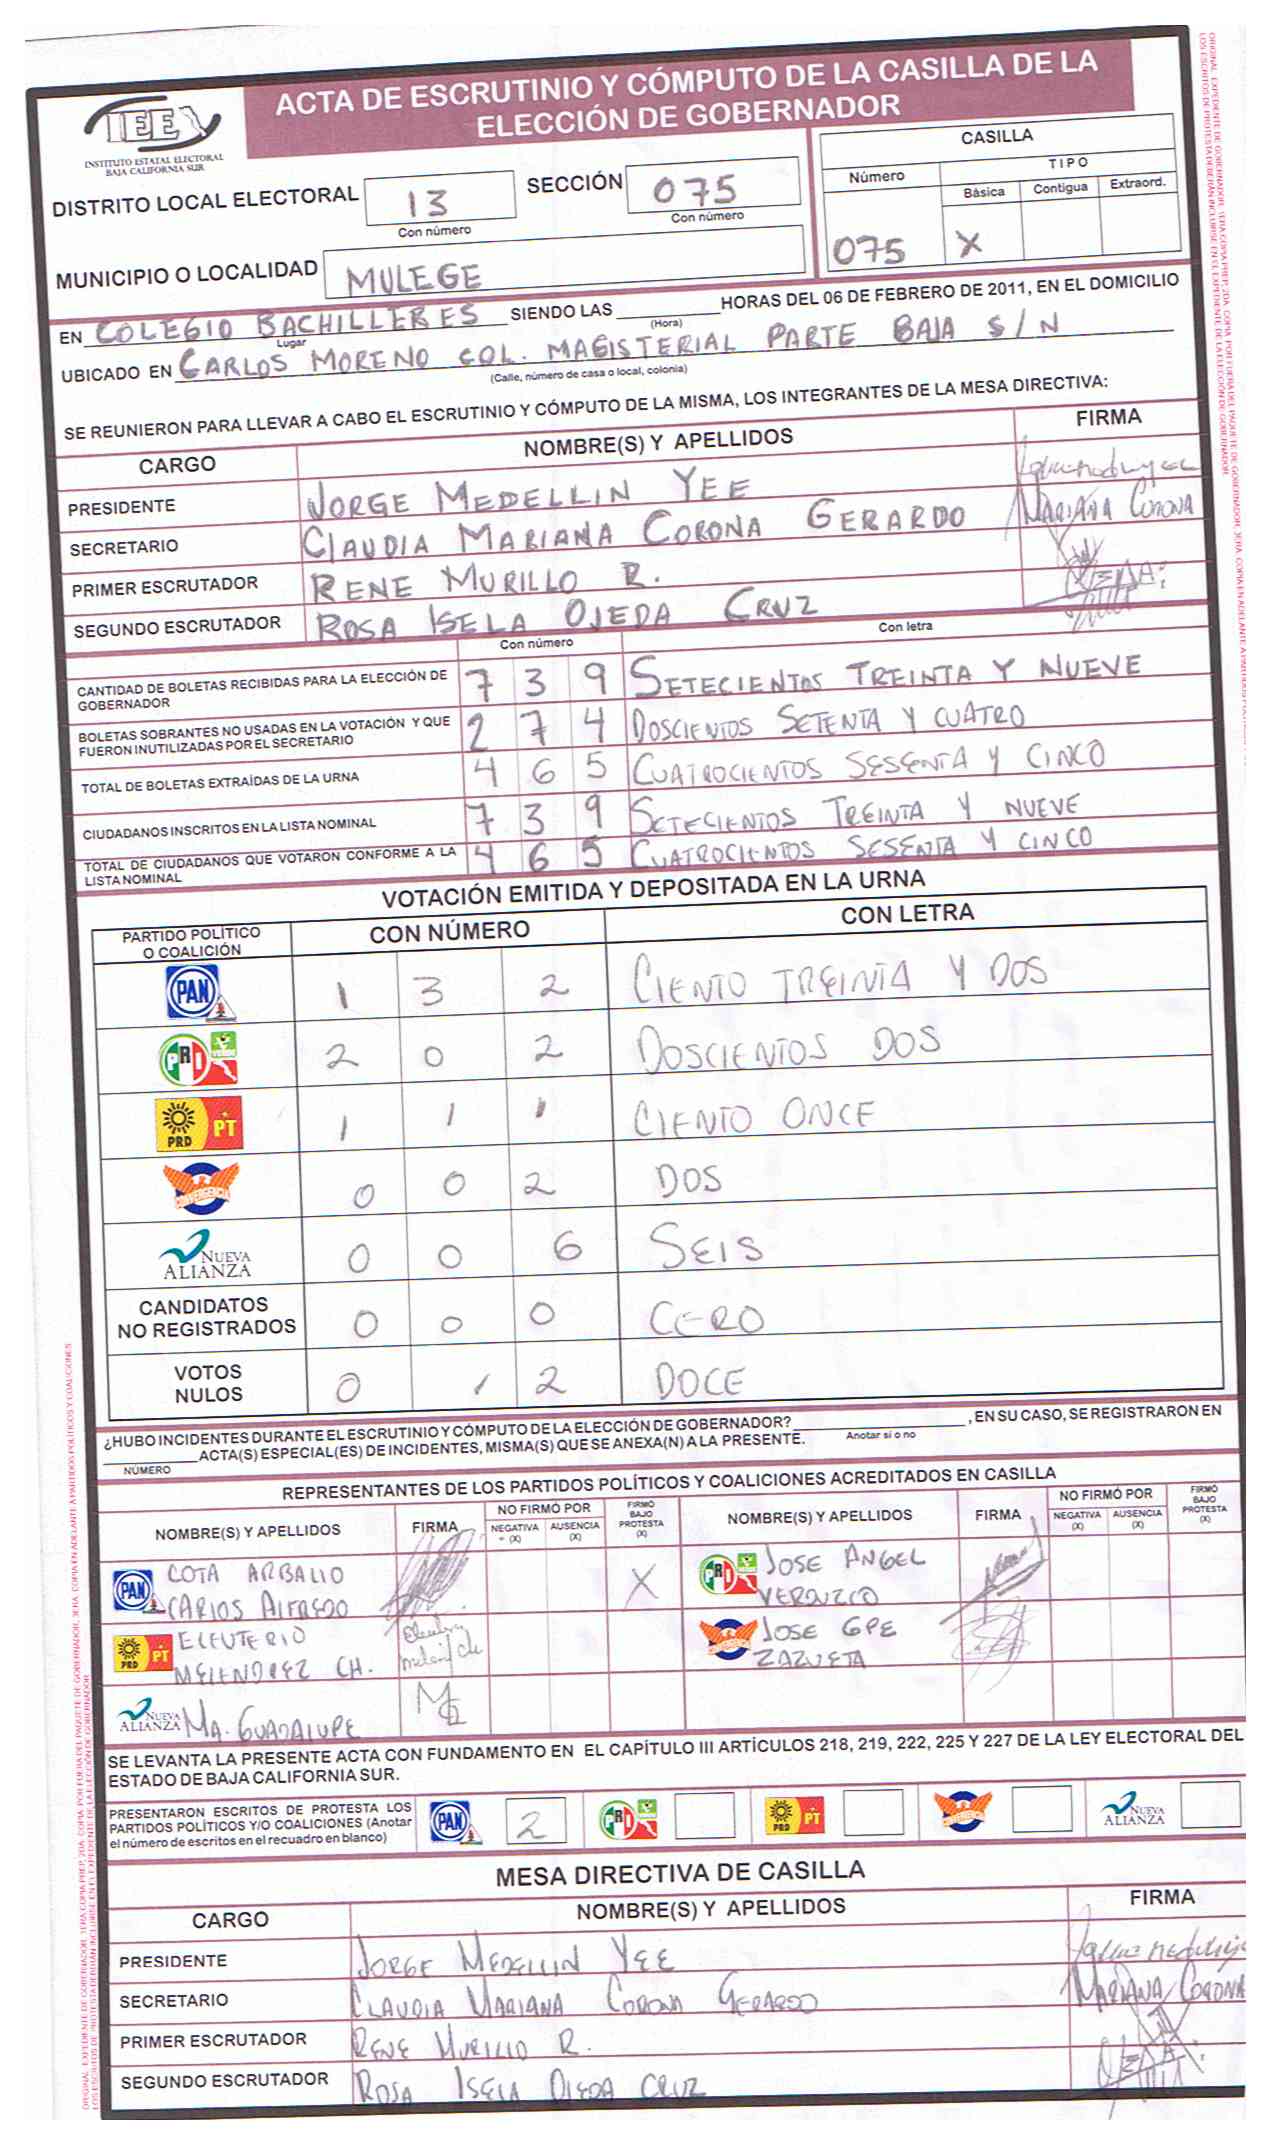 ACTA DE ESCRUTINIO Y CÓMPUTO DE LA CASILLA DE LA
ELECCIÓN DE GOBERNADOR
IEE
INSTITUTO ESTATAL ELECTORAL
BAJA CALIFORNIA SUR
DISTRITO LOCAL ELECTORAL 13
Con número
SECCIÓN 075
Con número
CASILLA
Número
TIPO
Básica Contigua Extraord.
075 X
MUNICIPIO O LOCALIDAD MULEGE
EN COLEGIO BACHILLERES SIENDO LAS HORAS DEL 06 DE FEBRERO DE 2011, EN EL DOMICILIO
Lugar (Hora)
UBICADO EN CARLOS MORENO COL. MAGISTERIAL PARTE BAJA S/N
(Calle, número de casa o local, colonia)
SE REUNIERON PARA LLEVAR A CABO EL ESCRUTINIO Y CÓMPUTO DE LA MISMA, LOS INTEGRANTES DE LA MESA DIRECTIVA:
CARGO NOMBRE(S) Y APELLIDOS FIRMA
PRESIDENTE JORGE MEDELLIN YEE
SECRETARIO CLAUDIA MARIANA CORONA GERARDO MARIANA CORONA
PRIMER ESCRUTADOR RENE MURILLO R.
SEGUNDO ESCRUTADOR ROSA ISELA OJEDA CRUZ
Con número Con letra
CANTIDAD DE BOLETAS RECIBIDAS PARA LA ELECCIÓN DE
GOBERNADOR
7 3 9 SETECIENTOS TREINTA Y NUEVE
BOLETAS SOBRANTES NO USADAS EN LA VOTACIÓN Y QUE
FUERON INUTILIZADAS POR EL SECRETARIO
2 7 4 DOSCIENTOS SETENTA Y CUATRO
TOTAL DE BOLETAS EXTRAÍDAS DE LA URNA 4 6 5 CUATROCIENTOS SESENTA Y CINCO
CIUDADANOS INSCRITOS EN LA LISTA NOMINAL 7 3 9 SETECIENTOS TREINTA Y NUEVE
TOTAL DE CIUDADANOS QUE VOTARON CONFORME A LA
LISTA NOMINAL
4 6 5 CUATROCIENTOS SESENTA Y CINCO
VOTACIÓN EMITIDA Y DEPOSITADA EN LA URNA
PARTIDO POLÍTICO
O COALICIÓN
CON NÚMERO CON LETRA
PAN 1 3 2 CIENTO TREINTA Y DOS
PRI VERDE 2 0 2 DOSCIENTOS DOS
PRD PT 1 1 1 CIENTO ONCE
CONVERGENCIA 0 0 2 DOS
NUEVA
ALIANZA
0 0 6 SEIS
CANDIDATOS
NO REGISTRADOS
0 0 0 CERO
VOTOS
NULOS
0 1 2 DOCE
¿HUBO INCIDENTES DURANTE EL ESCRUTINIO Y CÓMPUTO DE LA ELECCIÓN DE GOBERNADOR? , EN SU CASO, SE REGISTRARON EN
Anotar sí o no
ACTA(S) ESPECIAL(ES) DE INCIDENTES, MISMA(S) QUE SE ANEXA(N) A LA PRESENTE.
NÚMERO
REPRESENTANTES DE LOS PARTIDOS POLÍTICOS Y COALICIONES ACREDITADOS EN CASILLA
NOMBRE(S) Y APELLIDOS FIRMA NO FIRMÓ POR NEGATIVA (X) AUSENCIA (X) FIRMÓ BAJO PROTESTA (X)
NOMBRE(S) Y APELLIDOS FIRMA NO FIRMÓ POR NEGATIVA (X) AUSENCIA (X) FIRMÓ BAJO PROTESTA (X)
PAN COTA ARBALLO
CARLOS ALFREDO
X
PRI VERDE JOSE ANGEL
PRD PT ELEUTERIO
MELENDREZ CH.
CONVERGENCIA JOSE GPE
ZAZUETA
NUEVA
ALIANZA MA. GUADALUPE
SE LEVANTA LA PRESENTE ACTA CON FUNDAMENTO EN EL CAPÍTULO III ARTÍCULOS 218, 219, 222, 225 Y 227 DE LA LEY ELECTORAL DEL
ESTADO DE BAJA CALIFORNIA SUR.
PRESENTARON ESCRITOS DE PROTESTA LOS
PARTIDOS POLÍTICOS Y/O COALICIONES (Anotar
el número de escritos en el recuadro en blanco)
PAN 2 PRI VERDE PRD PT CONVERGENCIA NUEVA ALIANZA
MESA DIRECTIVA DE CASILLA
CARGO NOMBRE(S) Y APELLIDOS FIRMA
PRESIDENTE JORGE MEDELLIN YEE
SECRETARIO CLAUDIA MARIANA CORONA GERARDO MARIANA CORONA
PRIMER ESCRUTADOR RENE MURILLO R.
SEGUNDO ESCRUTADOR ROSA ISELA OJEDA CRUZ